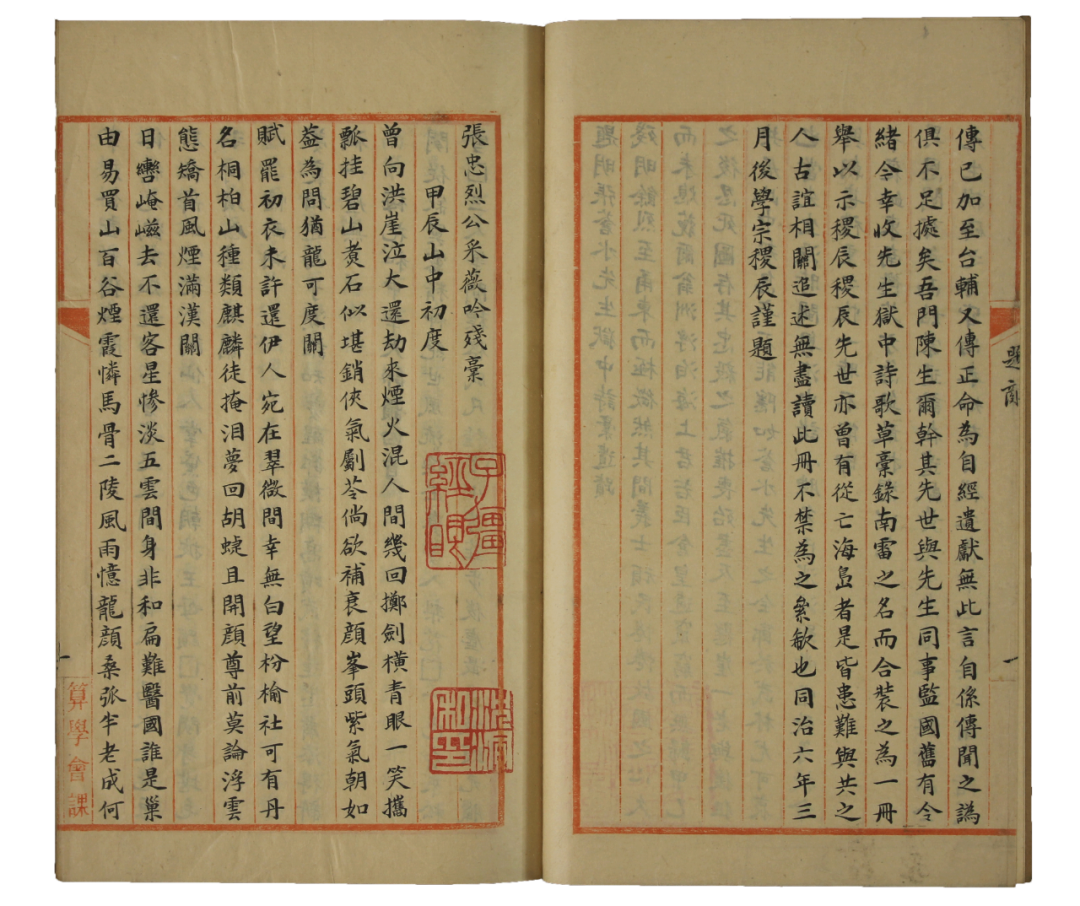 傳已加至台輔又傳正命為自經遺獻無此言自係傳聞之譌
俱不足據矣吾門陳生爾幹其先世與先生同事監國舊有令
緒今幸收先生獄中詩歌草稾錄南雷之名而合裝之為一冊
舉以示稷辰稷辰先世亦曾有從亡海島者是皆患難與共之
人古誼相關追述無盡讀此冊不禁為之絫欷也同治六年三
月後學宗稷辰謹題
題詞
一
張忠烈公采薇吟殘稾
甲辰山中初度
曾向洪崖泣大還劫來煙火混人間幾回擲劍橫青眼一笑攜
瓢挂碧山煑石似堪銷俠氣劚苓倘欲補衰顏峯頭紫氣朝如
葢為問猶龍可度關
賦罷初衣未許還伊人宛在翠微間幸無白望枌榆社可有丹
名桐柏山種類麒麟徒掩泪夢回胡蜨且開顏尊前莫論浮雲
態矯首風煙滿漢關
日轡崦嵫去不還客星慘淡五雲間身非和扁難醫國誰是巢
由易買山百谷煙霞憐馬骨二陵風雨憶龍顏桑弧半老成何
算學會課